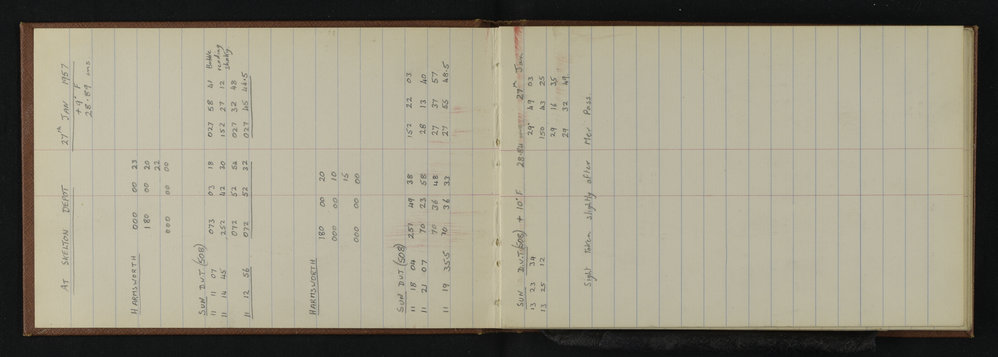 AT SKELTON DEPOT 27th JAN 1957
+9° F
28.89 ins
HARMSWORTH 000 00 23
180 00 20
22
000 00 00
SUN D.V.T (SOB)
11 11 07 073 03 18 027 58 41 Bubble
11 14 45 252 42 30 152 27 12 reading
072 52 54 027 32 48 shaky
11 12 56 072 52 32 027 45 44.5
HARMSWORTH 180 00 20
000 00 10
15
000 00 00
SUN DVT (SOB)
11 18 04 257 49 38 152 22 03
11 21 07 70 23 58 28 13 40
70 36 48 27 37 57
11 19 35.5 70 36 33 27 55 48.5
SUN D.V.T (SOB) + 10° F. 28.84 27th Jan
13 23 34 29° 49 03
13 25 12 150 43 25
29 16 35
29 32 49
Sight taken slightly after Mer Pass.